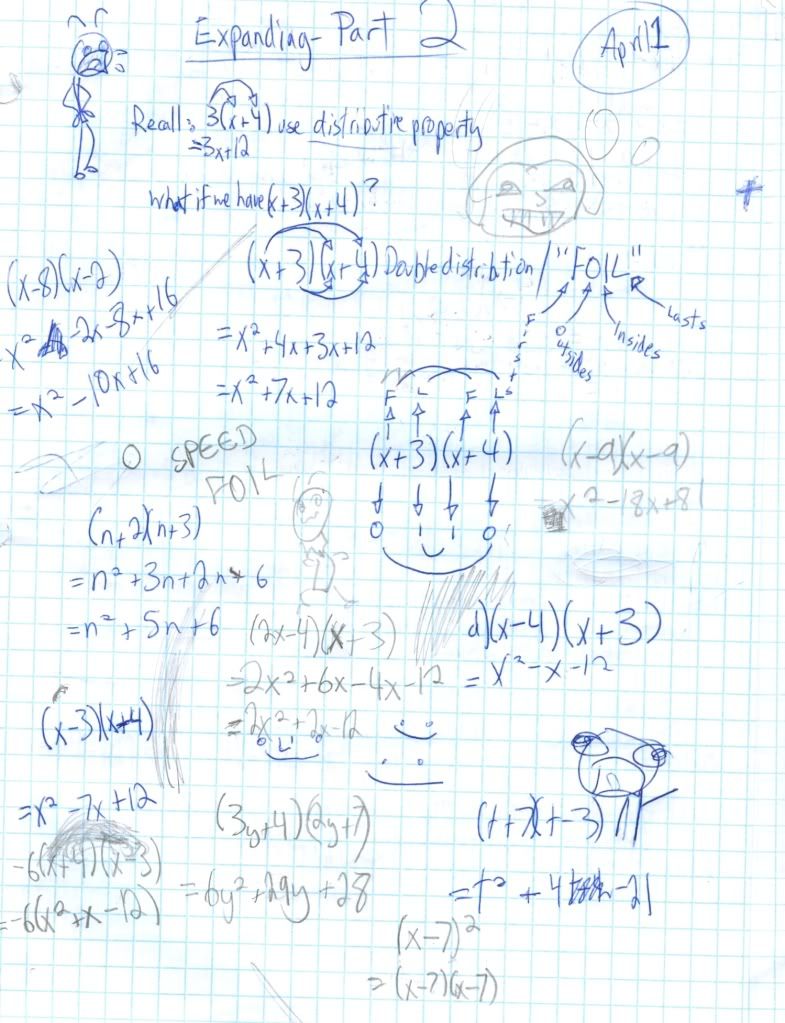 Expanding - Part 2
April 1
Recall: 3(x+4) use distributive property
=3x+12
What if we have (x+3)(x+4)?
(x+3)(x+4) Double distribution / "FOIL"
Firsts
Outsides
Insides
Lasts
=x²+4x+3x+12
=x²+7x+12
(x-8)(x-2)
x² -2x-8x+16
=x²-10x+16
F L F L
(x+3)(x+4)
O I I O
SPEED
FOIL
(x-9)(x-9)
x²-18x+81
(n+2)(n+3)
=n²+3n+2n+6
=n²+5n+6
(2x-4)(x+3)
=2x²+6x-4x-12
=2x²+2x-12
d)(x-4)(x+3)
=x²-x-12
(x-3)(x-4)
=x²-7x+12
-6(x+4)(x-3)
=-6(x²+x-12)
(3y+4)(2y+7)
=6y²+29y+28
(t+7)(t-3)
=t²+4t-21
(x-7)²
=(x-7)(x-7)